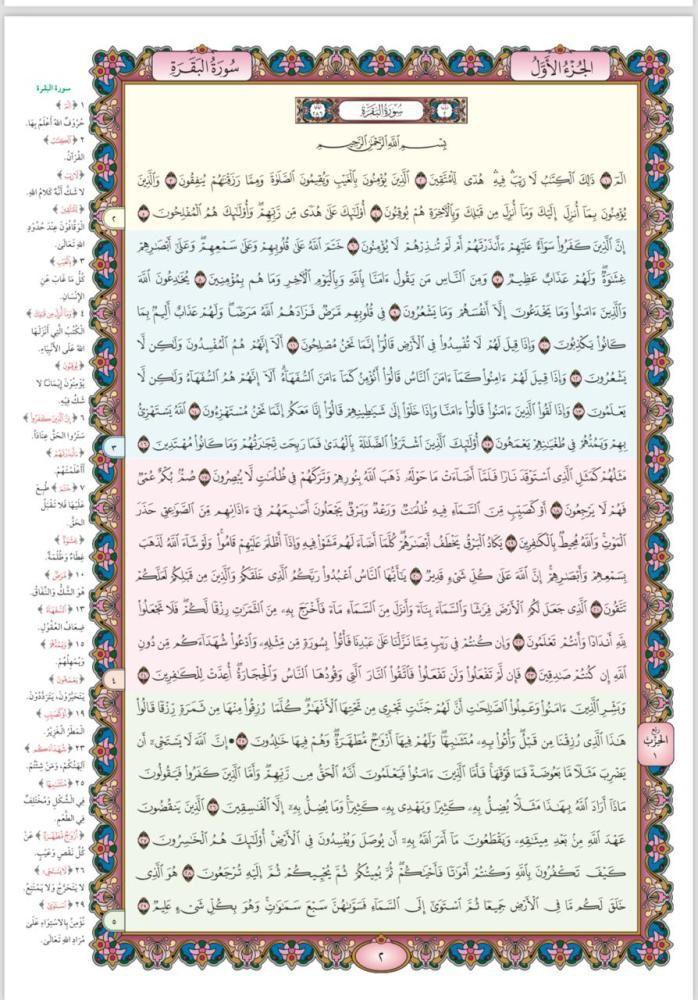 الجُزْءُ الأَوَّلُ
سُورَةُ البَقَرَةِ
سُورَةُ البَقَرَةِ
بِسْمِ اللَّهِ الرَّحْمَٰنِ الرَّحِيمِ
الٓمٓ ١ ذَٰلِكَ ٱلْكِتَٰبُ لَا رَيْبَۛ فِيهِۛ هُدًى لِّلْمُتَّقِينَ ٢ ٱلَّذِينَ يُؤْمِنُونَ بِٱلْغَيْبِ وَيُقِيمُونَ ٱلصَّلَوٰةَ وَمِمَّا رَزَقْنَٰهُمْ يُنفِقُونَ ٣ وَٱلَّذِينَ
يُؤْمِنُونَ بِمَآ أُنزِلَ إِلَيْكَ وَمَآ أُنزِلَ مِن قَبْلِكَ وَبِٱلْأٓخِرَةِ هُمْ يُوقِنُونَ ٤ أُو۟لَٰٓئِكَ عَلَىٰ هُدًى مِّن رَّبِّهِمْۖ وَأُو۟لَٰٓئِكَ هُمُ ٱلْمُفْلِحُونَ ٥
إِنَّ ٱلَّذِينَ كَفَرُوا۟ سَوَآءٌ عَلَيْهِمْ ءَأَنذَرْتَهُمْ أَمْ لَمْ تُنذِرْهُمْ لَا يُؤْمِنُونَ ٦ خَتَمَ ٱللَّهُ عَلَىٰ قُلُوبِهِمْ وَعَلَىٰ سَمْعِهِمْۖ وَعَلَىٰٓ أَبْصَٰرِهِمْ
غِشَٰوَةٌۖ وَلَهُمْ عَذَابٌ عَظِيمٌ ٧ وَمِنَ ٱلنَّاسِ مَن يَقُولُ ءَامَنَّا بِٱللَّهِ وَبِٱلْيَوْمِ ٱلْأٓخِرِ وَمَا هُم بِمُؤْمِنِينَ ٨ يُخَٰدِعُونَ ٱللَّهَ
وَٱلَّذِينَ ءَامَنُوا۟ وَمَا يَخْدَعُونَ إِلَّآ أَنفُسَهُمْ وَمَا يَشْعُرُونَ ٩ فِى قُلُوبِهِم مَّرَضٌ فَزَادَهُمُ ٱللَّهُ مَرَضًاۖ وَلَهُمْ عَذَابٌ أَلِيمٌۢ بِمَا
كَانُوا۟ يَكْذِبُونَ ١٠ وَإِذَا قِيلَ لَهُمْ لَا تُفْسِدُوا۟ فِى ٱلْأَرْضِ قَالُوٓا۟ إِنَّمَا نَحْنُ مُصْلِحُونَ ١١ أَلَآ إِنَّهُمْ هُمُ ٱلْمُفْسِدُونَ وَلَٰكِن لَّا
يَشْعُرُونَ ١٢ وَإِذَا قِيلَ لَهُمْ ءَامِنُوا۟ كَمَآ ءَامَنَ ٱلنَّاسُ قَالُوٓا۟ أَنُؤْمِنُ كَمَآ ءَامَنَ ٱلسُّفَهَآءُۗ أَلَآ إِنَّهُمْ هُمُ ٱلسُّفَهَآءُ وَلَٰكِن لَّا
يَعْلَمُونَ ١٣ وَإِذَا لَقُوا۟ ٱلَّذِينَ ءَامَنُوا۟ قَالُوٓا۟ ءَامَنَّا وَإِذَا خَلَوْا۟ إِلَىٰ شَيَٰطِينِهِمْ قَالُوٓا۟ إِنَّا مَعَكُمْ إِنَّمَا نَحْنُ مُسْتَهْزِءُونَ ١٤ ٱللَّهُ يَسْتَهْزِئُ
بِهِمْ وَيَمُدُّهُمْ فِى طُغْيَٰنِهِمْ يَعْمَهُونَ ١٥ أُو۟لَٰٓئِكَ ٱلَّذِينَ ٱشْتَرَوُا۟ ٱلضَّلَٰلَةَ بِٱلْهُدَىٰ فَمَا رَبِحَت تِّجَٰرَتُهُمْ وَمَا كَانُوا۟ مُهْتَدِينَ ١٦
مَثَلُهُمْ كَمَثَلِ ٱلَّذِى ٱسْتَوْقَدَ نَارًا فَلَمَّآ أَضَآءَتْ مَا حَوْلَهُۥ ذَهَبَ ٱللَّهُ بِنُورِهِمْ وَتَرَكَهُمْ فِى ظُلُمَٰتٍ لَّا يُبْصِرُونَ ١٧ صُمٌّۢ بُكْمٌ عُمْىٌ
فَهُمْ لَا يَرْجِعُونَ ١٨ أَوْ كَصَيِّبٍ مِّنَ ٱلسَّمَآءِ فِيهِ ظُلُمَٰتٌ وَرَعْدٌ وَبَرْقٌ يَجْعَلُونَ أَصَٰبِعَهُمْ فِىٓ ءَاذَانِهِم مِّنَ ٱلصَّوَٰعِقِ حَذَرَ
ٱلْمَوْتِۚ وَٱللَّهُ مُحِيطٌۢ بِٱلْكَٰفِرِينَ ١٩ يَكَادُ ٱلْبَرْقُ يَخْطَفُ أَبْصَٰرَهُمْۖ كُلَّمَآ أَضَآءَ لَهُم مَّشَوْا۟ فِيهِ وَإِذَآ أَظْلَمَ عَلَيْهِمْ قَامُوا۟ۚ وَلَوْ شَآءَ ٱللَّهُ لَذَهَبَ
بِسَمْعِهِمْ وَأَبْصَٰرِهِمْۚ إِنَّ ٱللَّهَ عَلَىٰ كُلِّ شَىْءٍ قَدِيرٌ ٢٠ يَٰٓأَيُّهَا ٱلنَّاسُ ٱعْبُدُوا۟ رَبَّكُمُ ٱلَّذِى خَلَقَكُمْ وَٱلَّذِينَ مِن قَبْلِكُمْ لَعَلَّكُمْ
تَتَّقُونَ ٢١ ٱلَّذِى جَعَلَ لَكُمُ ٱلْأَرْضَ فِرَٰشًا وَٱلسَّمَآءَ بِنَآءً وَأَنزَلَ مِنَ ٱلسَّمَآءِ مَآءً فَأَخْرَجَ بِهِۦ مِنَ ٱلثَّمَرَٰتِ رِزْقًا لَّكُمْۖ فَلَا تَجْعَلُوا۟
لِلَّهِ أَندَادًا وَأَنتُمْ تَعْلَمُونَ ٢٢ وَإِن كُنتُمْ فِى رَيْبٍ مِّمَّا نَزَّلْنَا عَلَىٰ عَبْدِنَا فَأْتُوا۟ بِسُورَةٍ مِّن مِّثْلِهِۦ وَٱدْعُوا۟ شُهَدَآءَكُم مِّن دُونِ
ٱللَّهِ إِن كُنتُمْ صَٰدِقِينَ ٢٣ فَإِن لَّمْ تَفْعَلُوا۟ وَلَن تَفْعَلُوا۟ فَٱتَّقُوا۟ ٱلنَّارَ ٱلَّتِى وَقُودُهَا ٱلنَّاسُ وَٱلْحِجَارَةُۖ أُعِدَّتْ لِلْكَٰفِرِينَ ٢٤
وَبَشِّرِ ٱلَّذِينَ ءَامَنُوا۟ وَعَمِلُوا۟ ٱلصَّٰلِحَٰتِ أَنَّ لَهُمْ جَنَّٰتٍ تَجْرِى مِن تَحْتِهَا ٱلْأَنْهَٰرُۖ كُلَّمَا رُزِقُوا۟ مِنْهَا مِن ثَمَرَةٍ رِّزْقًا قَالُوا۟
هَٰذَا ٱلَّذِى رُزِقْنَا مِن قَبْلُۖ وَأُتُوا۟ بِهِۦ مُتَشَٰبِهًاۖ وَلَهُمْ فِيهَآ أَزْوَٰجٌ مُّطَهَّرَةٌۖ وَهُمْ فِيهَا خَٰلِدُونَ ٢٥ ۞ إِنَّ ٱللَّهَ لَا يَسْتَحْىِۦٓ أَن
يَضْرِبَ مَثَلًا مَّا بَعُوضَةً فَمَا فَوْقَهَاۚ فَأَمَّا ٱلَّذِينَ ءَامَنُوا۟ فَيَعْلَمُونَ أَنَّهُ ٱلْحَقُّ مِن رَّبِّهِمْۖ وَأَمَّا ٱلَّذِينَ كَفَرُوا۟ فَيَقُولُونَ
مَاذَآ أَرَادَ ٱللَّهُ بِهَٰذَا مَثَلًاۘ يُضِلُّ بِهِۦ كَثِيرًا وَيَهْدِى بِهِۦ كَثِيرًاۚ وَمَا يُضِلُّ بِهِۦٓ إِلَّا ٱلْفَٰسِقِينَ ٢٦ ٱلَّذِينَ يَنقُضُونَ
عَهْدَ ٱللَّهِ مِنۢ بَعْدِ مِيثَٰقِهِۦ وَيَقْطَعُونَ مَآ أَمَرَ ٱللَّهُ بِهِۦٓ أَن يُوصَلَ وَيُفْسِدُونَ فِى ٱلْأَرْضِۚ أُو۟لَٰٓئِكَ هُمُ ٱلْخَٰسِرُونَ ٢٧
كَيْفَ تَكْفُرُونَ بِٱللَّهِ وَكُنتُمْ أَمْوَٰتًا فَأَحْيَٰكُمْۖ ثُمَّ يُمِيتُكُمْ ثُمَّ يُحْيِيكُمْ ثُمَّ إِلَيْهِ تُرْجَعُونَ ٢٨ هُوَ ٱلَّذِى
خَلَقَ لَكُم مَّا فِى ٱلْأَرْضِ جَمِيعًا ثُمَّ ٱسْتَوَىٰٓ إِلَى ٱلسَّمَآءِ فَسَوَّىٰهُنَّ سَبْعَ سَمَٰوَٰتٍۚ وَهُوَ بِكُلِّ شَىْءٍ عَلِيمٌ ٢٩
ربع
الحِزْبِ
١
٢
٣
٤
٥
٢
سورة البقرة
١ ﴿الٓمٓ﴾
حُرُوفٌ اللهُ أَعْلَمُ بِهَا.
٢ ﴿ٱلْكِتَٰبُ﴾
القُرْآنُ.
﴿لَا رَيْبَ﴾
لا شَكَّ أَنَّهُ كَلَامُ اللهِ.
﴿لِّلْمُتَّقِينَ﴾
الوَقَّافُونَ عِنْدَ حُدُودِ
اللهِ تَعَالَى.
٣ ﴿بِٱلْغَيْبِ﴾
كُلُّ مَا غَابَ عَنِ
الإِنْسَانِ.
٤ ﴿وَمَآ أُنزِلَ مِن قَبْلِكَ﴾
الكُتُبُ الَّتِي أَنْزَلَهَا
اللهُ عَلَى الأَنْبِيَاءِ.
﴿يُوقِنُونَ﴾
يُؤْمِنُونَ إِيمَانًا لا
شَكَّ فِيهِ.
٦ ﴿إِنَّ ٱلَّذِينَ كَفَرُوا۟﴾
سَتَرُوا الحَقَّ عِنَادًا.
﴿ءَأَنذَرْتَهُمْ﴾
أَأَعْلَمْتَهُمْ.
٧ ﴿خَتَمَ﴾ طَبَعَ
عَلَيْهَا فَلا تَقْبَلُ
الحَقَّ.
﴿غِشَٰوَةٌ﴾
غِطَاءٌ وَظُلْمَةٌ.
١٠ ﴿مَّرَضٌ﴾
هُوَ الشَّكُّ وَالنِّفَاقُ.
١٣ ﴿ٱلسُّفَهَآءُ﴾
ضِعَافُ العُقُولِ.
١٥ ﴿وَيَمُدُّهُمْ﴾
وَيُمْهِلُهُمْ.
﴿يَعْمَهُونَ﴾
يَتَحَيَّرُونَ، يَتَرَدَّدُونَ.
١٩ ﴿أَوْ كَصَيِّبٍ﴾
المَطَرُ الغَزِيرُ.
٢٣ ﴿شُهَدَآءَكُم﴾
آلِهَتَكُمْ، وَمَنْ شِئْتُمْ.
٢٥ ﴿مُتَشَٰبِهًا﴾
فِي الشَّكْلِ وَمُخْتَلِفٌ
فِي الطَّعْمِ.
﴿أَزْوَٰجٌ مُّطَهَّرَةٌ﴾ عَنْ
كُلِّ نَقْصٍ وَعَيْبٍ.
٢٦ ﴿لَا يَسْتَحْىِۦٓ﴾
لا يَتَحَرَّجُ وَلا يَمْتَنِعُ.
٢٩ ﴿ٱسْتَوَىٰٓ﴾
نُؤْمِنُ بِالاسْتِوَاءِ عَلَى
مُرَادِ اللهِ تَعَالَى.